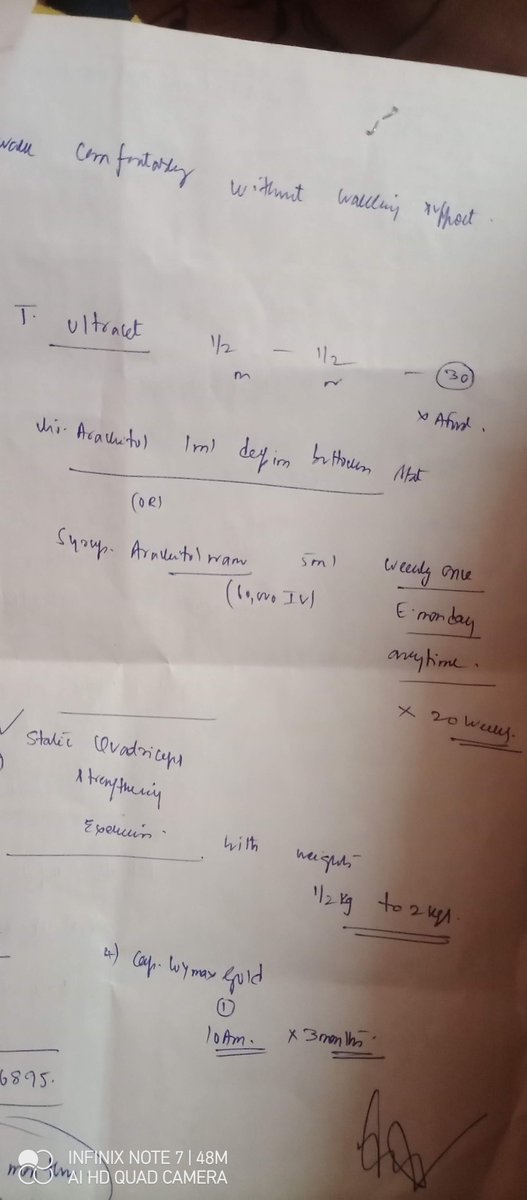 comfortably without walking support.
T. Ultracet 1/2 — 1/2 — 30
m n
Inj. Arachitol 1ml deep im buttocks stat
(OR)
Syrup. Arachitol nano 5ml weekly once
(60,000 IU) E. monday
anytime.
× 20 weeks.
Static Quadriceps
strengthening
Exercises. with weights
1/2 kg to 2 kgs.
4) Cap. gold
1
10 Am. × 3 months.
6895.
INFINIX NOTE 7 | 48M
AI HD QUAD CAMERA